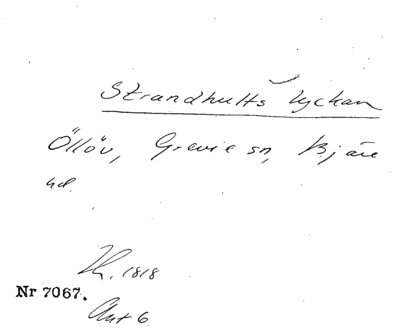 Strandhults lyckan
Öllöv, Grevie sn, Bjäre
hd.
1818
Nr 7067.
Akt 6